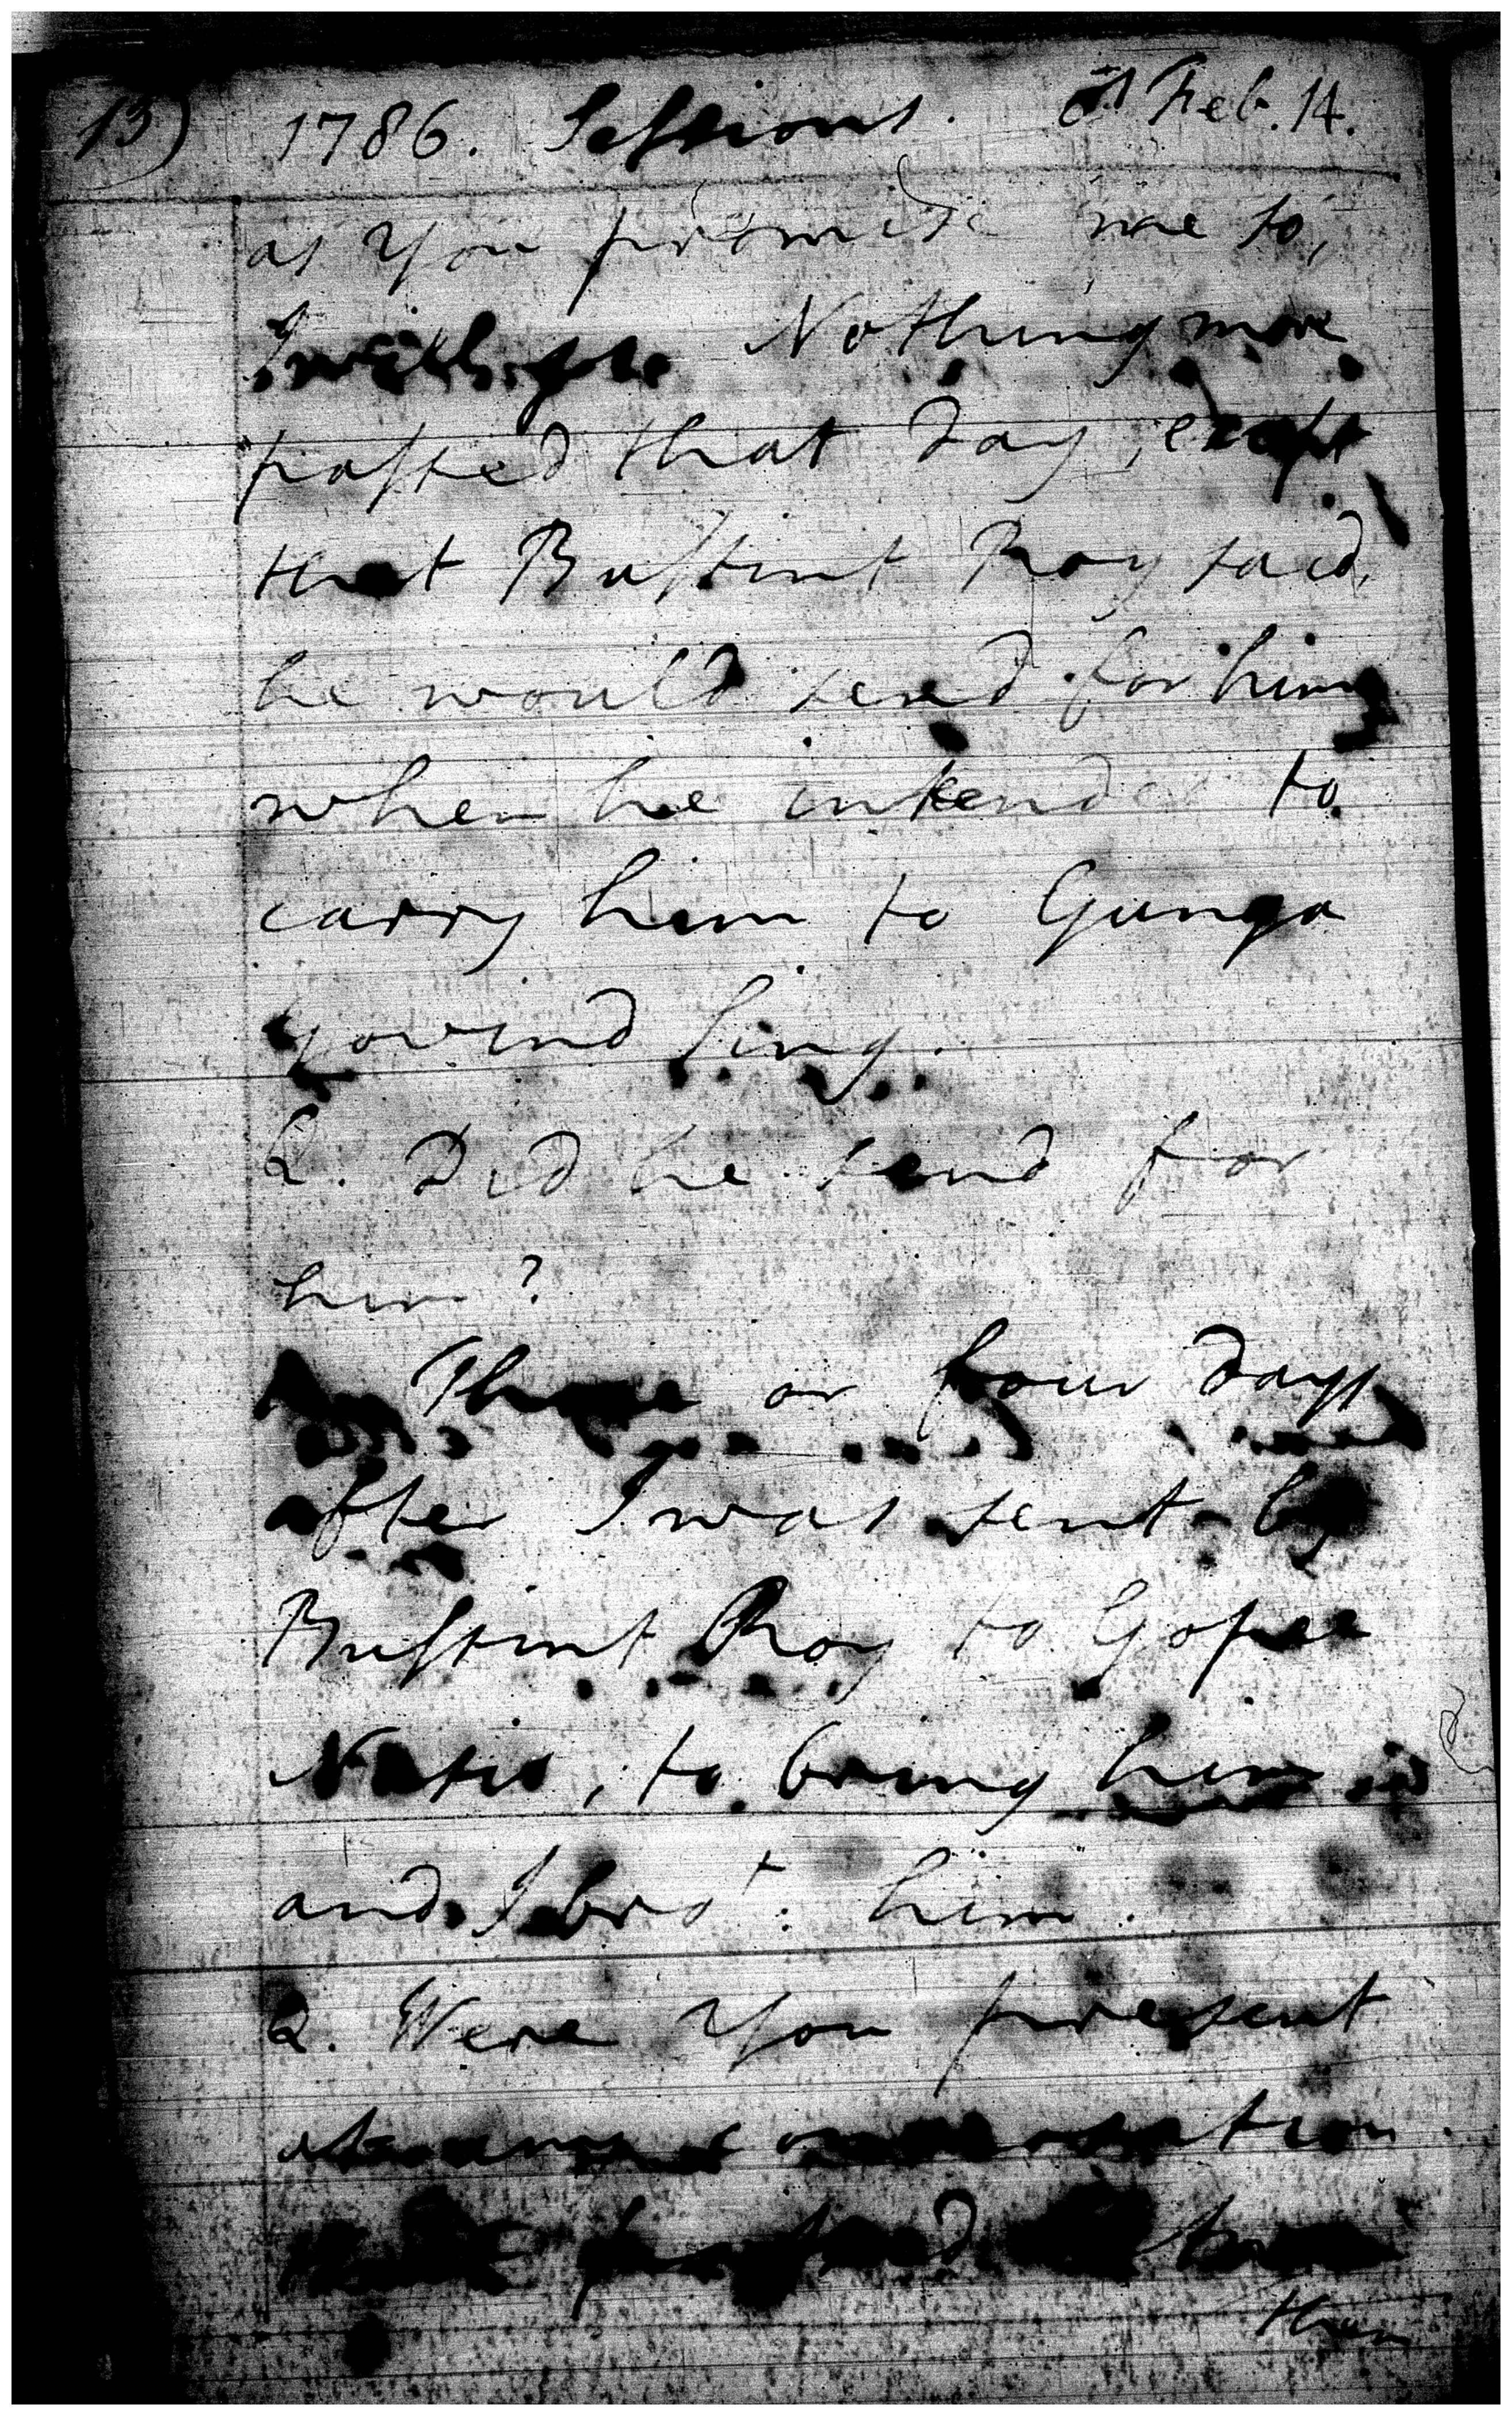 13) 1786. Sessions. Feb. 14.
as you promise me to,
I will go. Nothing more
passed that day, except
that Bustint Roy said,
he would send for him
when he intended to
carry him to Gunga
Govind Sing.
Q. Did he send for
him?
A. Three or four days
after I was sent by
Bustint Roy to Gopee
Nazir, to bring him,
and I bro't: him.
Q. Were you present
at any conversation
that passed between
them